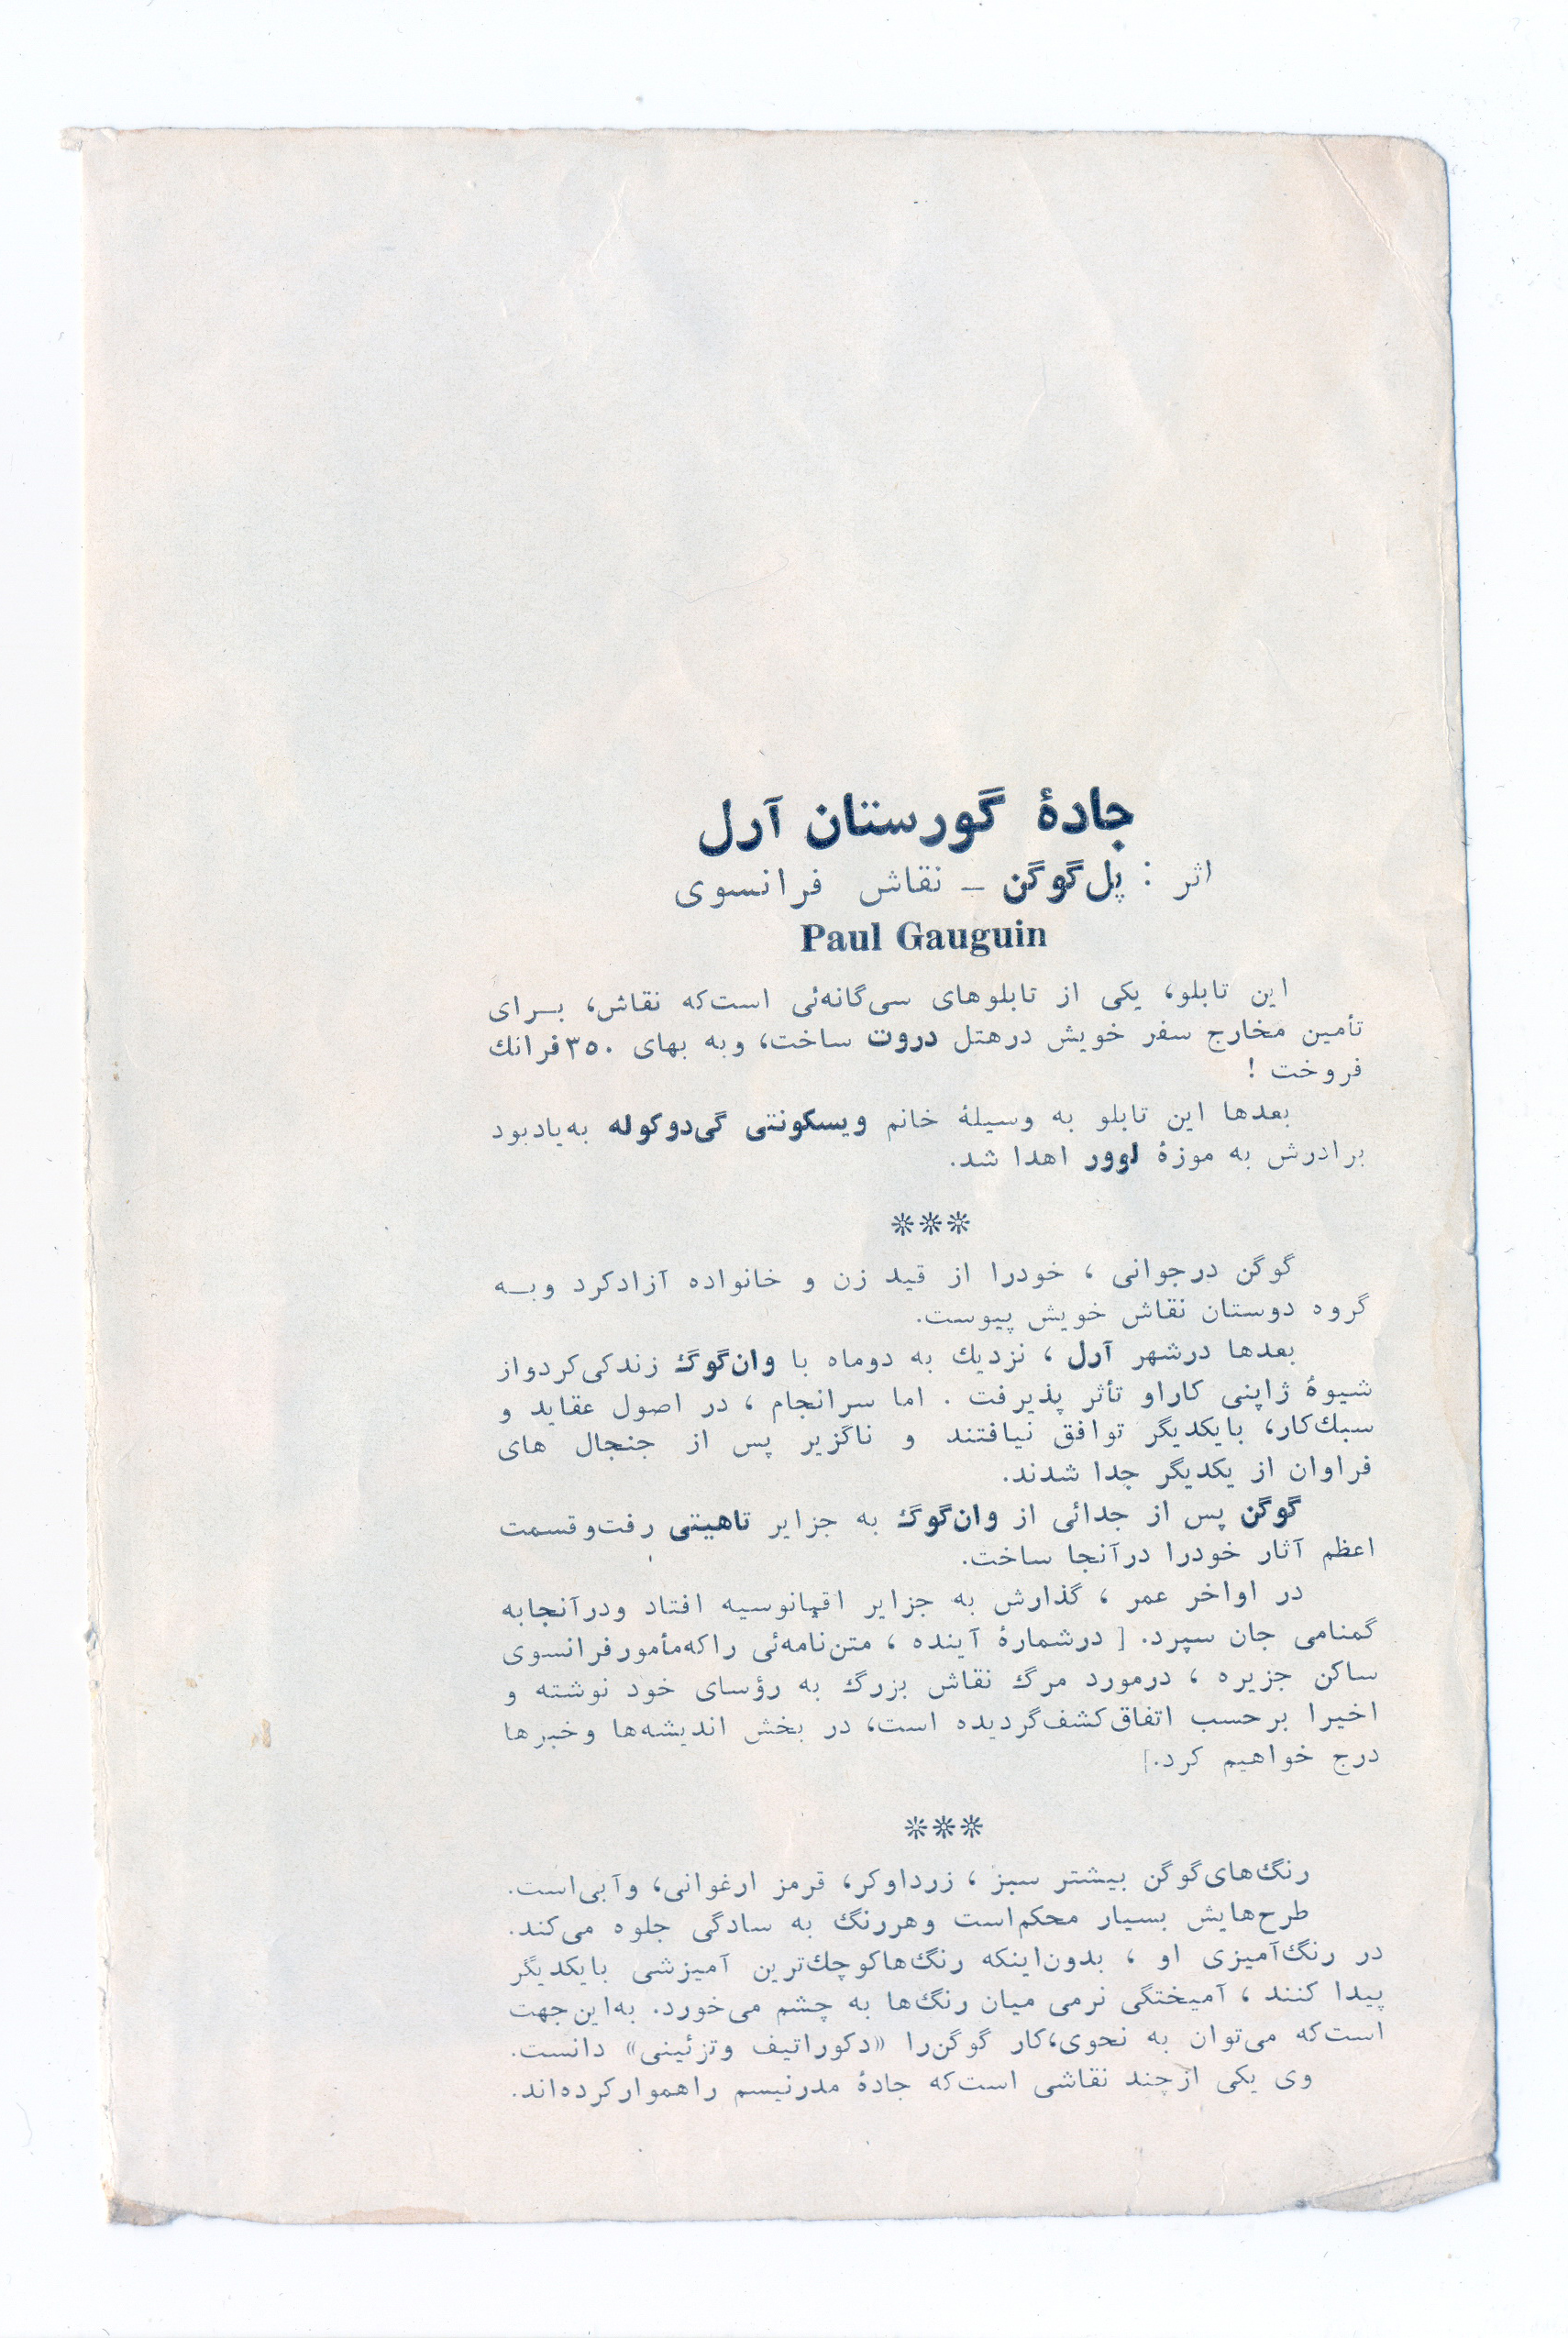 جادهٔ گورستان آرل
اثر : پل‌گوگن ـ نقاش فرانسوی
Paul Gauguin
این تابلو، یکی از تابلوهای سی‌گانه‌ئی است‌که نقاش، بـرای
تأمین مخارج سفر خویش درهتل دروت ساخت، وبه بهای ۳۵۰فرانك
فروخت !
بعدها این تابلو به وسیلهٔ خانم ویسکونتی گی‌دوکوله به‌یادبود
برادرش به موزهٔ لوور اهدا شد.
***
گوگن درجوانی ، خودرا از قید زن و خانواده آزادکرد وبـه
گروه دوستان نقاش خویش پیوست.
بعدها درشهر آرل ، نزدیك به دوماه با وان‌گوگ زندکی‌کردواز
شیوهٔ ژاپنی کاراو تأثر پذیرفت . اما سرانجام ، در اصول عقاید و
سبك‌کار، بایکدیگر توافق نیافتند و ناگزیر پس از جنجال های
فراوان از یکدیگر جدا شدند.
گوگن پس از جدائی از وان‌گوگ به جزایر تاهیتی رفت‌وقسمت
اعظم آثار خودرا درآنجا ساخت.
در اواخر عمر ، گذارش به جزایر اقیانوسیه افتاد ودرآنجابه
گمنامی جان سپرد. [ درشمارهٔ آینده ، متن‌نامه‌ئی راکه‌مأمورفرانسوی
ساکن جزیره ، درمورد مرگ نقاش بزرگ به رؤسای خود نوشته و
اخیرا برحسب اتفاق‌کشف‌گردیده است، در بخش اندیشه‌ها وخبرها
درج خواهیم کرد.]
***
رنگ‌های‌گوگن بیشتر سبز ، زرداوکر، قرمز ارغوانی، وآبی‌است.
طرح‌هایش بسیار محکم‌است وهررنگ به سادگی جلوه می‌کند.
در رنگ‌آمیزی او ، بدون‌اینکه رنگ‌هاکوچك‌ترین آمیزشی بایکدیگر
پیدا کنند ، آمیختگی نرمی میان رنگ‌ها به چشم می‌خورد. به‌این‌جهت
است‌که می‌توان به نحوی،کار گوگن‌را «دکوراتیف وتزئینی» دانست.
وی یکی ازچند نقاشی است‌که جادهٔ مدرنیسم راهموارکرده‌اند.